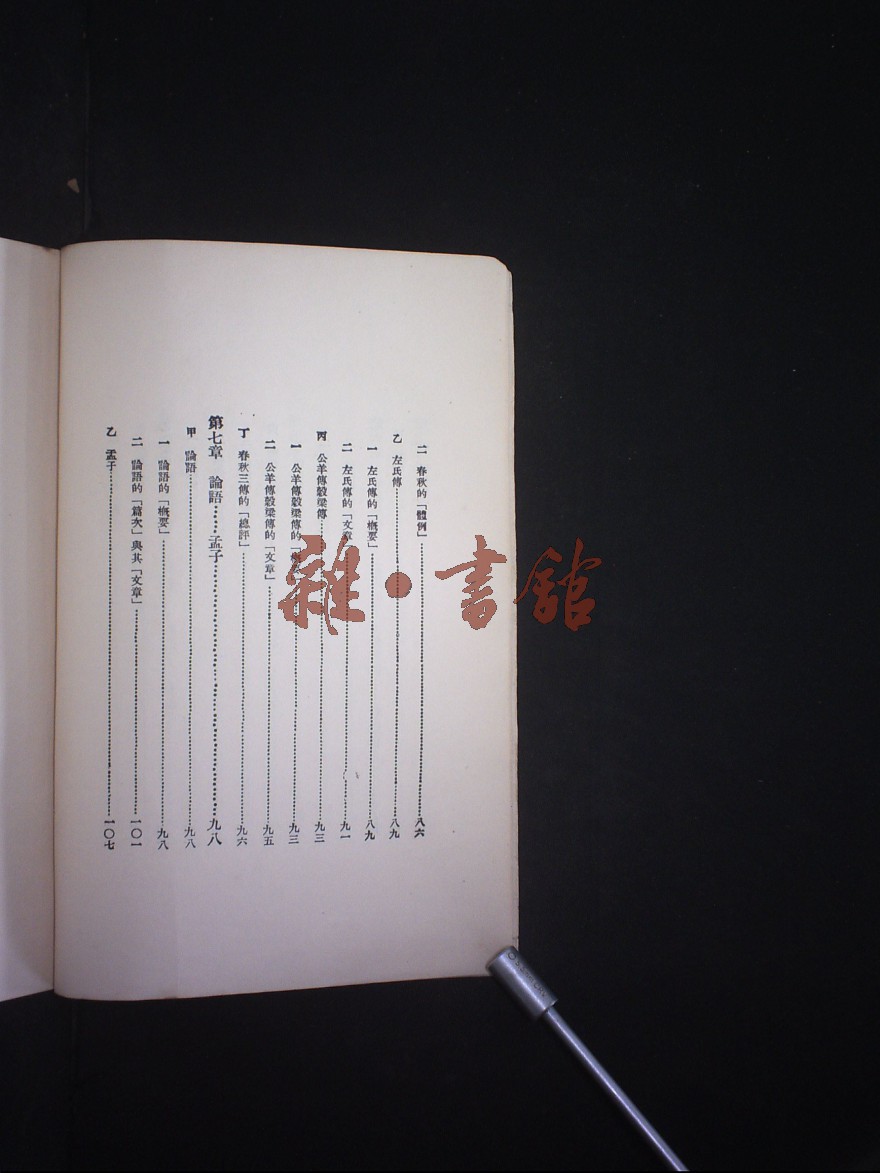 二 春秋的「體例」……八六
乙 左氏傳……八九
一 左氏傳的「概要」……八九
二 左氏傳的「文章」……九一
丙 公羊傳穀梁傳……九三
一 公羊傳穀梁傳的「概要」……九三
二 公羊傳穀梁傳的「文章」……九五
丁 春秋三傳的「總評」……九六
第七章 論語……孟子……九八
甲 論語……九八
一 論語的「概要」……九八
二 論語的「篇次」與其「文章」……一〇一
乙 孟子……一〇七
雜·書館